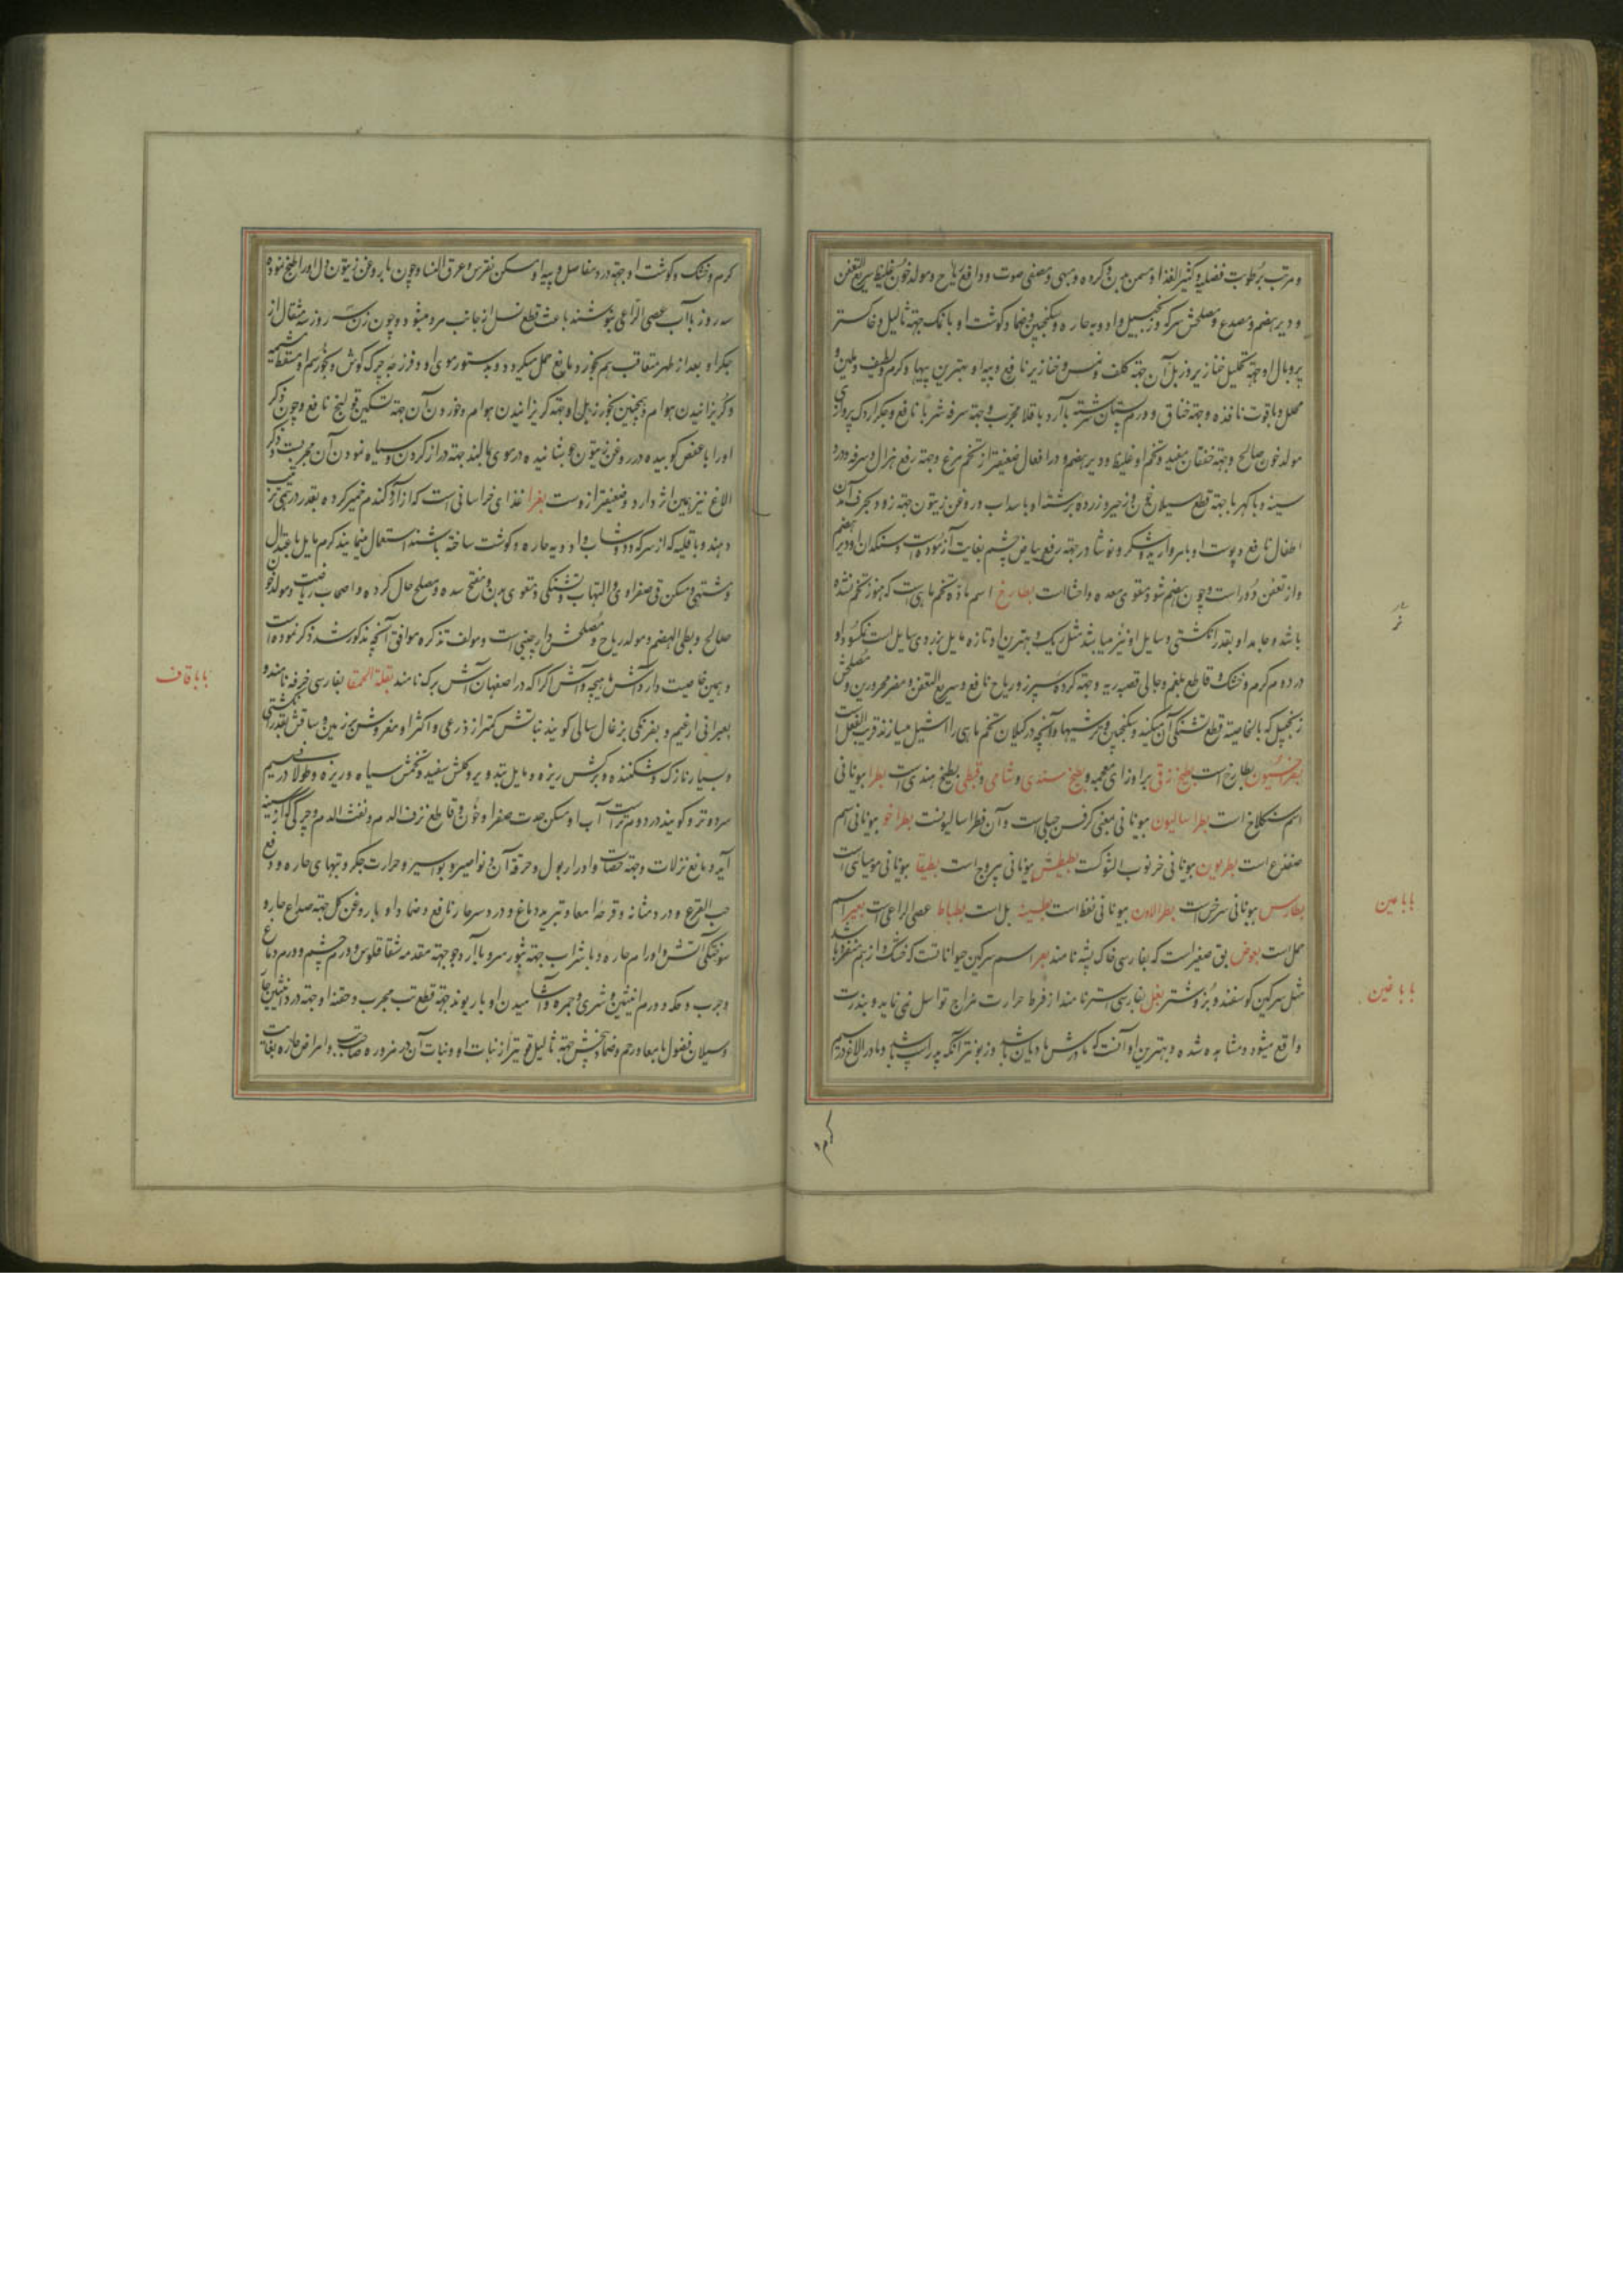 و مرتب برطوبت فضلیه و کثیر الغذا و مسمن بدن و کرده و مبهی و مصفی صوت و دافع ریاح و مولد خون غلیظ سریع التعفن
و دیر هضم و مصدع و مصلحش سرکه و زنجبیل و ادویه حاره و سکنجبین و ضماد کوشت او با نمک جهة ثالیل و خاکستر
پر و بال او جهة تحلیل خنازیر و زبل آن جهة کلف و نمش و خنازیر نافع و پیه او بهترین پیها و کرم و لطیف و ملین و
محلل و با قوت نافذه و جهة خناق و ورم پستان سرشته با آرد باقلا مجرب و جهة سرفه شربا نافع و جکر اردک پرواری
مولد خون صالح و جهة خفقان مفید و تخم او غلیظ و دیر هضم و در افعال ضعیفتر از تخم مرغ و جهة رفع هزال و سرفه و درد
سینه و با کهربا جهة قطع سیلان خون و زحیر و زرده برشته او با سداب و روغن زیتون جهة زود بحرف آمدن
اطفال نافع و پوست او با مروارید و شکر و نوشادر جهة رفع بیاض چشم بغایت آزموده است و سنکدان او دیر هضم
و از تعفن دور است و چون هضم شود مقوی معده و احشا است بطارخ اسم ماده تخم ماهی است که هنوز تخم نشده
باشد و جامد او بقدر انکشتی و سایل او نیز میباشد مثل ریک و بهترین او تازه مایل بزردی سایل است نمکسود او
در دوم کرم و خشک و قاطع بلغم و جالی قصبه ریه و جهة کرده و سپرز و ریاح نافع و سریع التعفن و مضر محرورین و مصلحش
زنجبیل که بالخاصیة قطع تشنکی آن میکند و سکنجبین و ترشیها و آنچه در کیلان تخم ماهی را اشپل میسازند قریب الفعل است
بطارخ است بطیخ زقی براء و زای معجمه و بطیخ سندی و شامی و قبطی بطیخ هندی است بطرا بیونانی
اسم سنکلاخ است بطراسالیون بیونانی بمعنی کرفس جبلی است و آن فطراسالیونست بطراخو بیونانی اسم
ضفدع است بطرمیون بیونانی خرنوب الشوکست بطیطش بیونانی یبروج است بطیقا بیونانی مومیائی است
بطارس بیونانی سرخس است بطرالاون بیونانی نفط است بطسیه بل است بطباط عصی الراعی است بعیر اسم
جمل است بعوض بق صغیر است که بفارسی خاک پشه نامند بعر اسم سرکین حیوانات که خشک و از هم متفرق باشد
مثل سرکین کوسفند و بز و شتر بغل بفارسی استر نامند از فرط حرارت مزاج تواسل نمی نماید و بندرت
واقع میشود و مشاهده شده و بهترین او آنست که مادرش مادیان باشد و زبونتر آنکه پدر اسب باشد و مادر الاغ در سیم
با با عین
با با غین
کرم و خشک و کوشت او جهة درد مفاصل و پیه او مسکن نقرس و عرق النسا و چون با روغن زیتون دل او را طبخ نموده
سه روز با آب عصی الراعی بنوشند باعث قطع نسل از جانب مرد میشود و چون زن سه روز سه مثقال از
جکر او بعد از طهر متعاقب هم بخورد مانع حمل میکردد و بدستور موی او و فرزجه چرک کوش و بخور سم او مسقط مشیمه
و کریزانیدن هوام و همچنین بخور زبل او جهة کریزانیدن هوام و خوردن آن جهة تسکین قولنج نافع و چون ذکر
او را با عفص کوبیده در روغن زیتون جوشانیده در موی مالند جهة دراز کردن و سیاه نمودن آن مجربست و ذکر
الاغ نیز همین اثر دارد و ضعیفتر از وست بغرا غذای خراسانی است که از آرد کندم خمیر کرده بقدر درهمی ترتیب
دهند و با قلیه که از سرکه و دوشاب و ادویه حاره و کوشت ساخته باشند استعمال نمایند کرم مایل باعتدال
و مشتهی و مسکن قی صفراوی و التهاب و تشنکی و مقوی بدن و مفتح سده و مصلح حال کرده و اصحاب ریاضت و مولد خون
صالح و بطی الهضم و مولد ریاح و مصلحش دارچینی است و مولف تذکره موافق آنچه مذکور شد ذکر نموده است
و همین خاصیت دارد آش ماهیچه و آش اکرا که در اصفهان آش برک نامند بقلة الحمقا بفارسی خرفه نامند و
بعبرانی ارغیم و بفرنکی بزغال سالی کویند نباتش کمتر از ذرعی و اکثر او مفروش بر زمین و ساقش بقدر انکشتی
و بسیار نازک و شکننده و برکش ریزه و مایل بتدویر و کلش سفید و تخمش سیاه و ریزه و طولا در سیم
سرد و تر و کویند در دوم تر است آب او مسکن حدت صفرا و خون و قاطع نزف الدم و نفث الدم و چرکی که از سینه
آید و مانع نزلات و جهة حصاة و ادرار بول و حرقة آن و نواصیر و بواسیر و حرارت جکر و تبهای حاره و دفع
حب القرع و درد مثانه و قرحه امعا و تبرید دماغ و درد سر حار نافع و ضماد او با روغن کل جهة صداع حاره
سوختکی آتش و اورام حاره و با شراب جهة بثور سر و با آرد جو جهة مقدمه شقاقلوس و ورم چشم و ورم دماغ
و جرب و حکه و ورم انثیین و شری و جمره و آشامیدن او با ریوند جهة قطع تب مجرب و حقنه او جهة درد انثیین حار
و سیلان فضول بامعا و رحم و ضماد بیخش جهة ثالیل قویتر از نبات او و نبات آن در ضرورت صاحب و امراض حاره بغایت
با با قاف